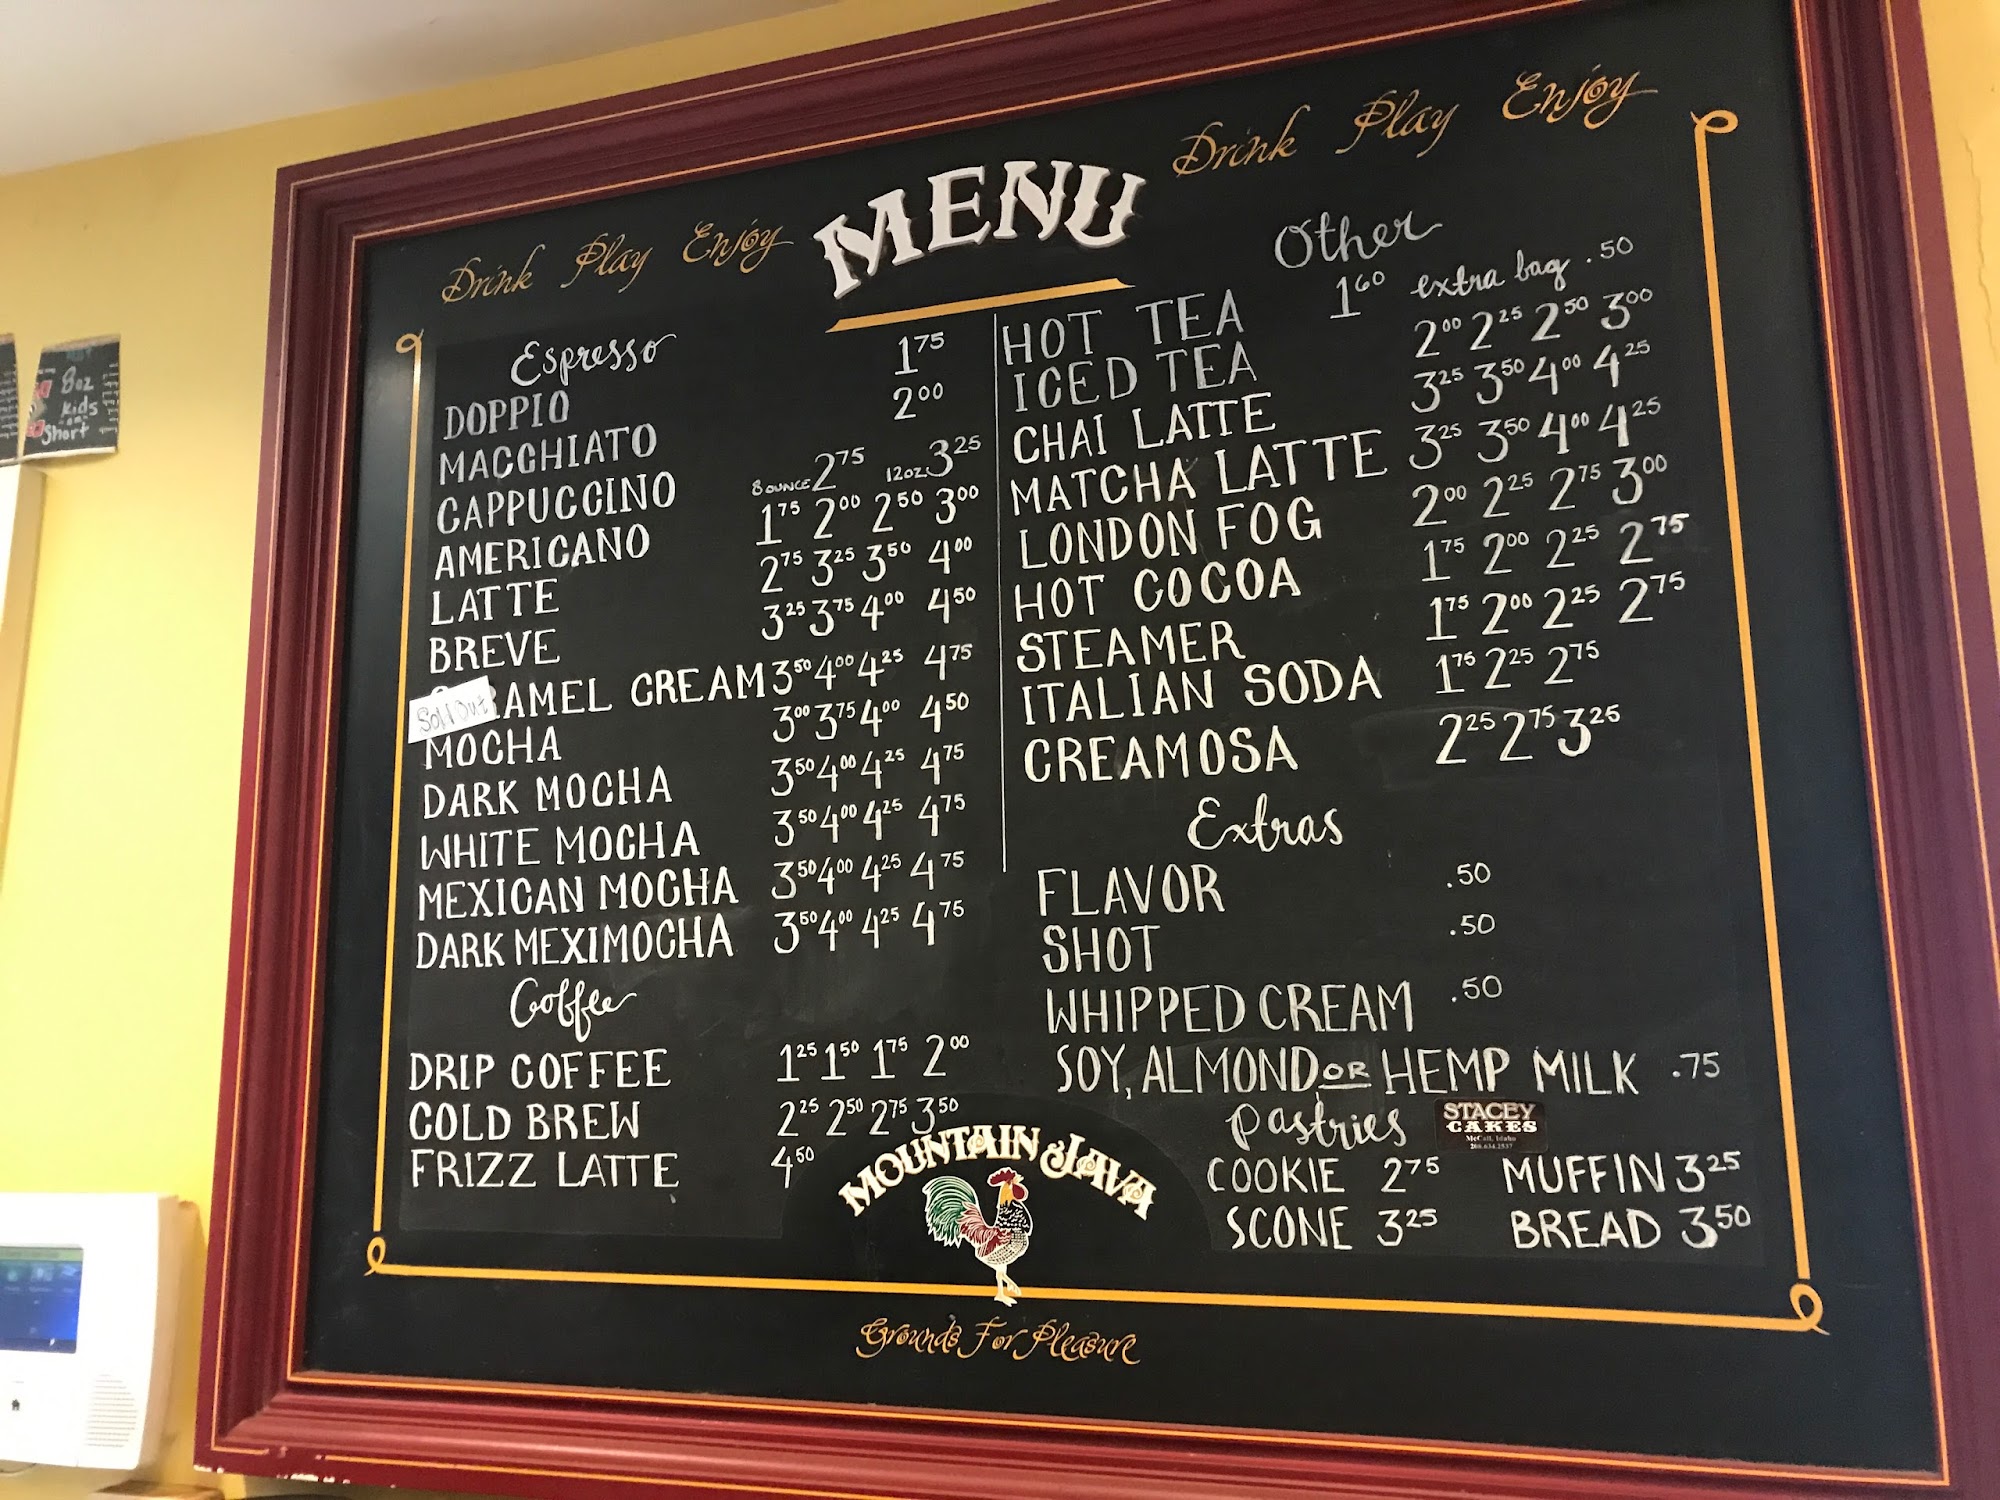 Drink Play Enjoy
MENU
Drink Play Enjoy
Espresso
DOPPIO 1.75
MACCHIATO 2.00
CAPPUCCINO 8 OUNCE 2.75 12 OZ. 3.25
AMERICANO 1.75 2.00 2.50 3.00
LATTE 2.75 3.25 3.50 4.00
BREVE 3.25 3.75 4.00 4.50
Sold Out
RAMEL CREAM 3.50 4.00 4.25 4.75
MOCHA 3.00 3.75 4.00 4.50
DARK MOCHA 3.50 4.00 4.25 4.75
WHITE MOCHA 3.50 4.00 4.25 4.75
MEXICAN MOCHA 3.50 4.00 4.25 4.75
DARK MEXIMOCHA 3.50 4.00 4.25 4.75
Coffee
DRIP COFFEE 1.25 1.50 1.75 2.00
COLD BREW 2.25 2.50 2.75 3.50
FRIZZ LATTE 4.50
Other
HOT TEA 1.60 extra bag .50
ICED TEA 2.00 2.25 2.50 3.00
CHAI LATTE 3.25 3.50 4.00 4.25
MATCHA LATTE 3.25 3.50 4.00 4.25
LONDON FOG 2.00 2.25 2.75 3.00
HOT COCOA 1.75 2.00 2.25 2.75
STEAMER 1.75 2.00 2.25 2.75
ITALIAN SODA 1.75 2.25 2.75
CREAMOSA 2.25 2.75 3.25
Extras
FLAVOR .50
SHOT .50
WHIPPED CREAM .50
SOY, ALMOND OR HEMP MILK .75
Pastries
STACEY CAKES
McCall, Idaho
208.634.2537
COOKIE 2.75 MUFFIN 3.25
SCONE 3.25 BREAD 3.50
MOUNTAIN JAVA
Grounds For Pleasure
8oz
Kids
Short